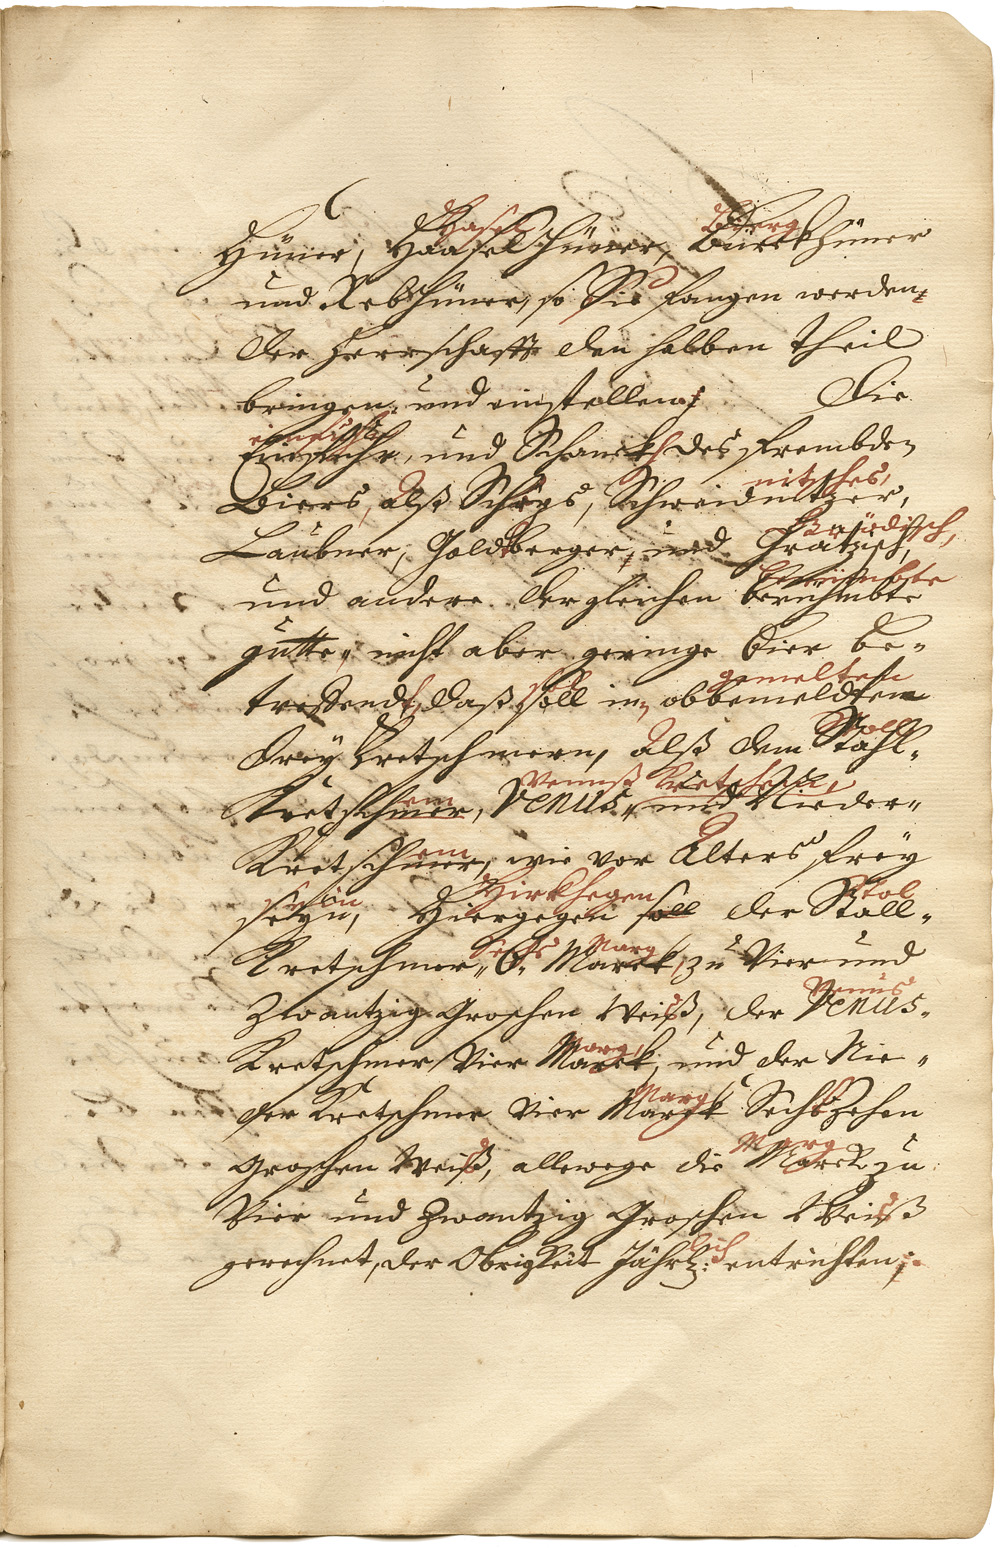 Hasel Bierg
Hüner, Haasel Hüner, Bürckhüner
und Rebhüner, so Sie fangen werden,
der Herrschafft den halben theil
bringen, und einstellen, Die
einfuhr
Einfuhr, und Schanck des frembden
nitsches,
Biers, alß Schöps, Schweidnitzer,
Laubner, Goldtberger, und Grätzisch,
berümbte
und andere dergleichen berühmbte
gutte, nicht aber geringe Bier be-
gemelten
treffendt, daß soll in obbemeldten
Stoll
drey Kretschmern, alß dem Stahl-
em Venuß Kretschem,
Kretschmer, Venus, und Nieder-
em
Kretschmer, wie vor Alters frey
sein Hirkhegen Stol
seyn, Hiergegen soll der Stall-
sechs Marg
Kretschmer, 6. Marck, zu Vier und
Venus
Zwantzig Groschen Weiß, der Venus-
Marg
Kretschmer Vier Marck, und der Nie-
Marg
der Kretschmer Vier Marck Sechßzehen
Marg
Groschen Weiß, allewege die Marck zu
Vier und Zwantzig Groschen Weiß
lich
gerechnet, der Obrigkeit Jährl: entrichten,